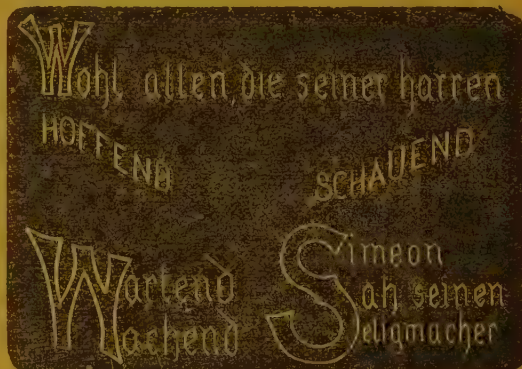 Wohl allen, die seiner harren
HOFFEND
SCHAUEND
Wartend
Wachend
Simeon
Sah seinen
Seligmacher